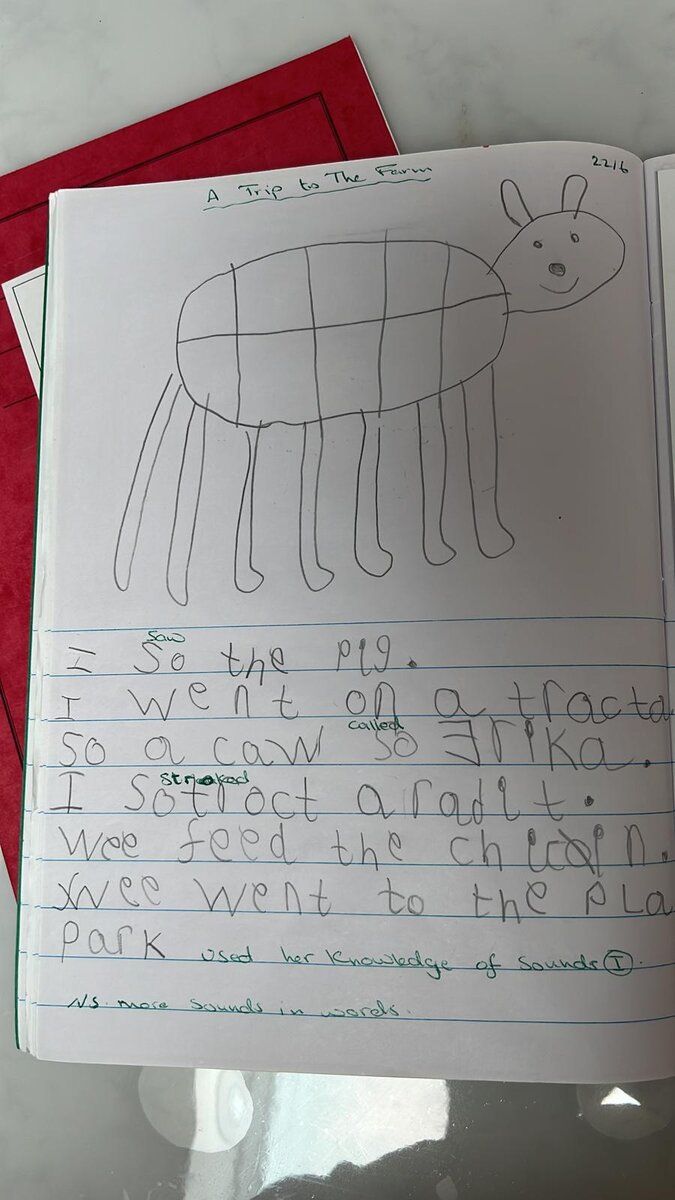 22/6
A Trip to The Farm
saw
I So the pig.
I went on a tracta
called
so a caw so Erika.
stroked
I Sotroct a radit.
wee feed the chicin.
wee went to the PLa
Park used her knowledge of sounds I.
NS. more sounds in words.